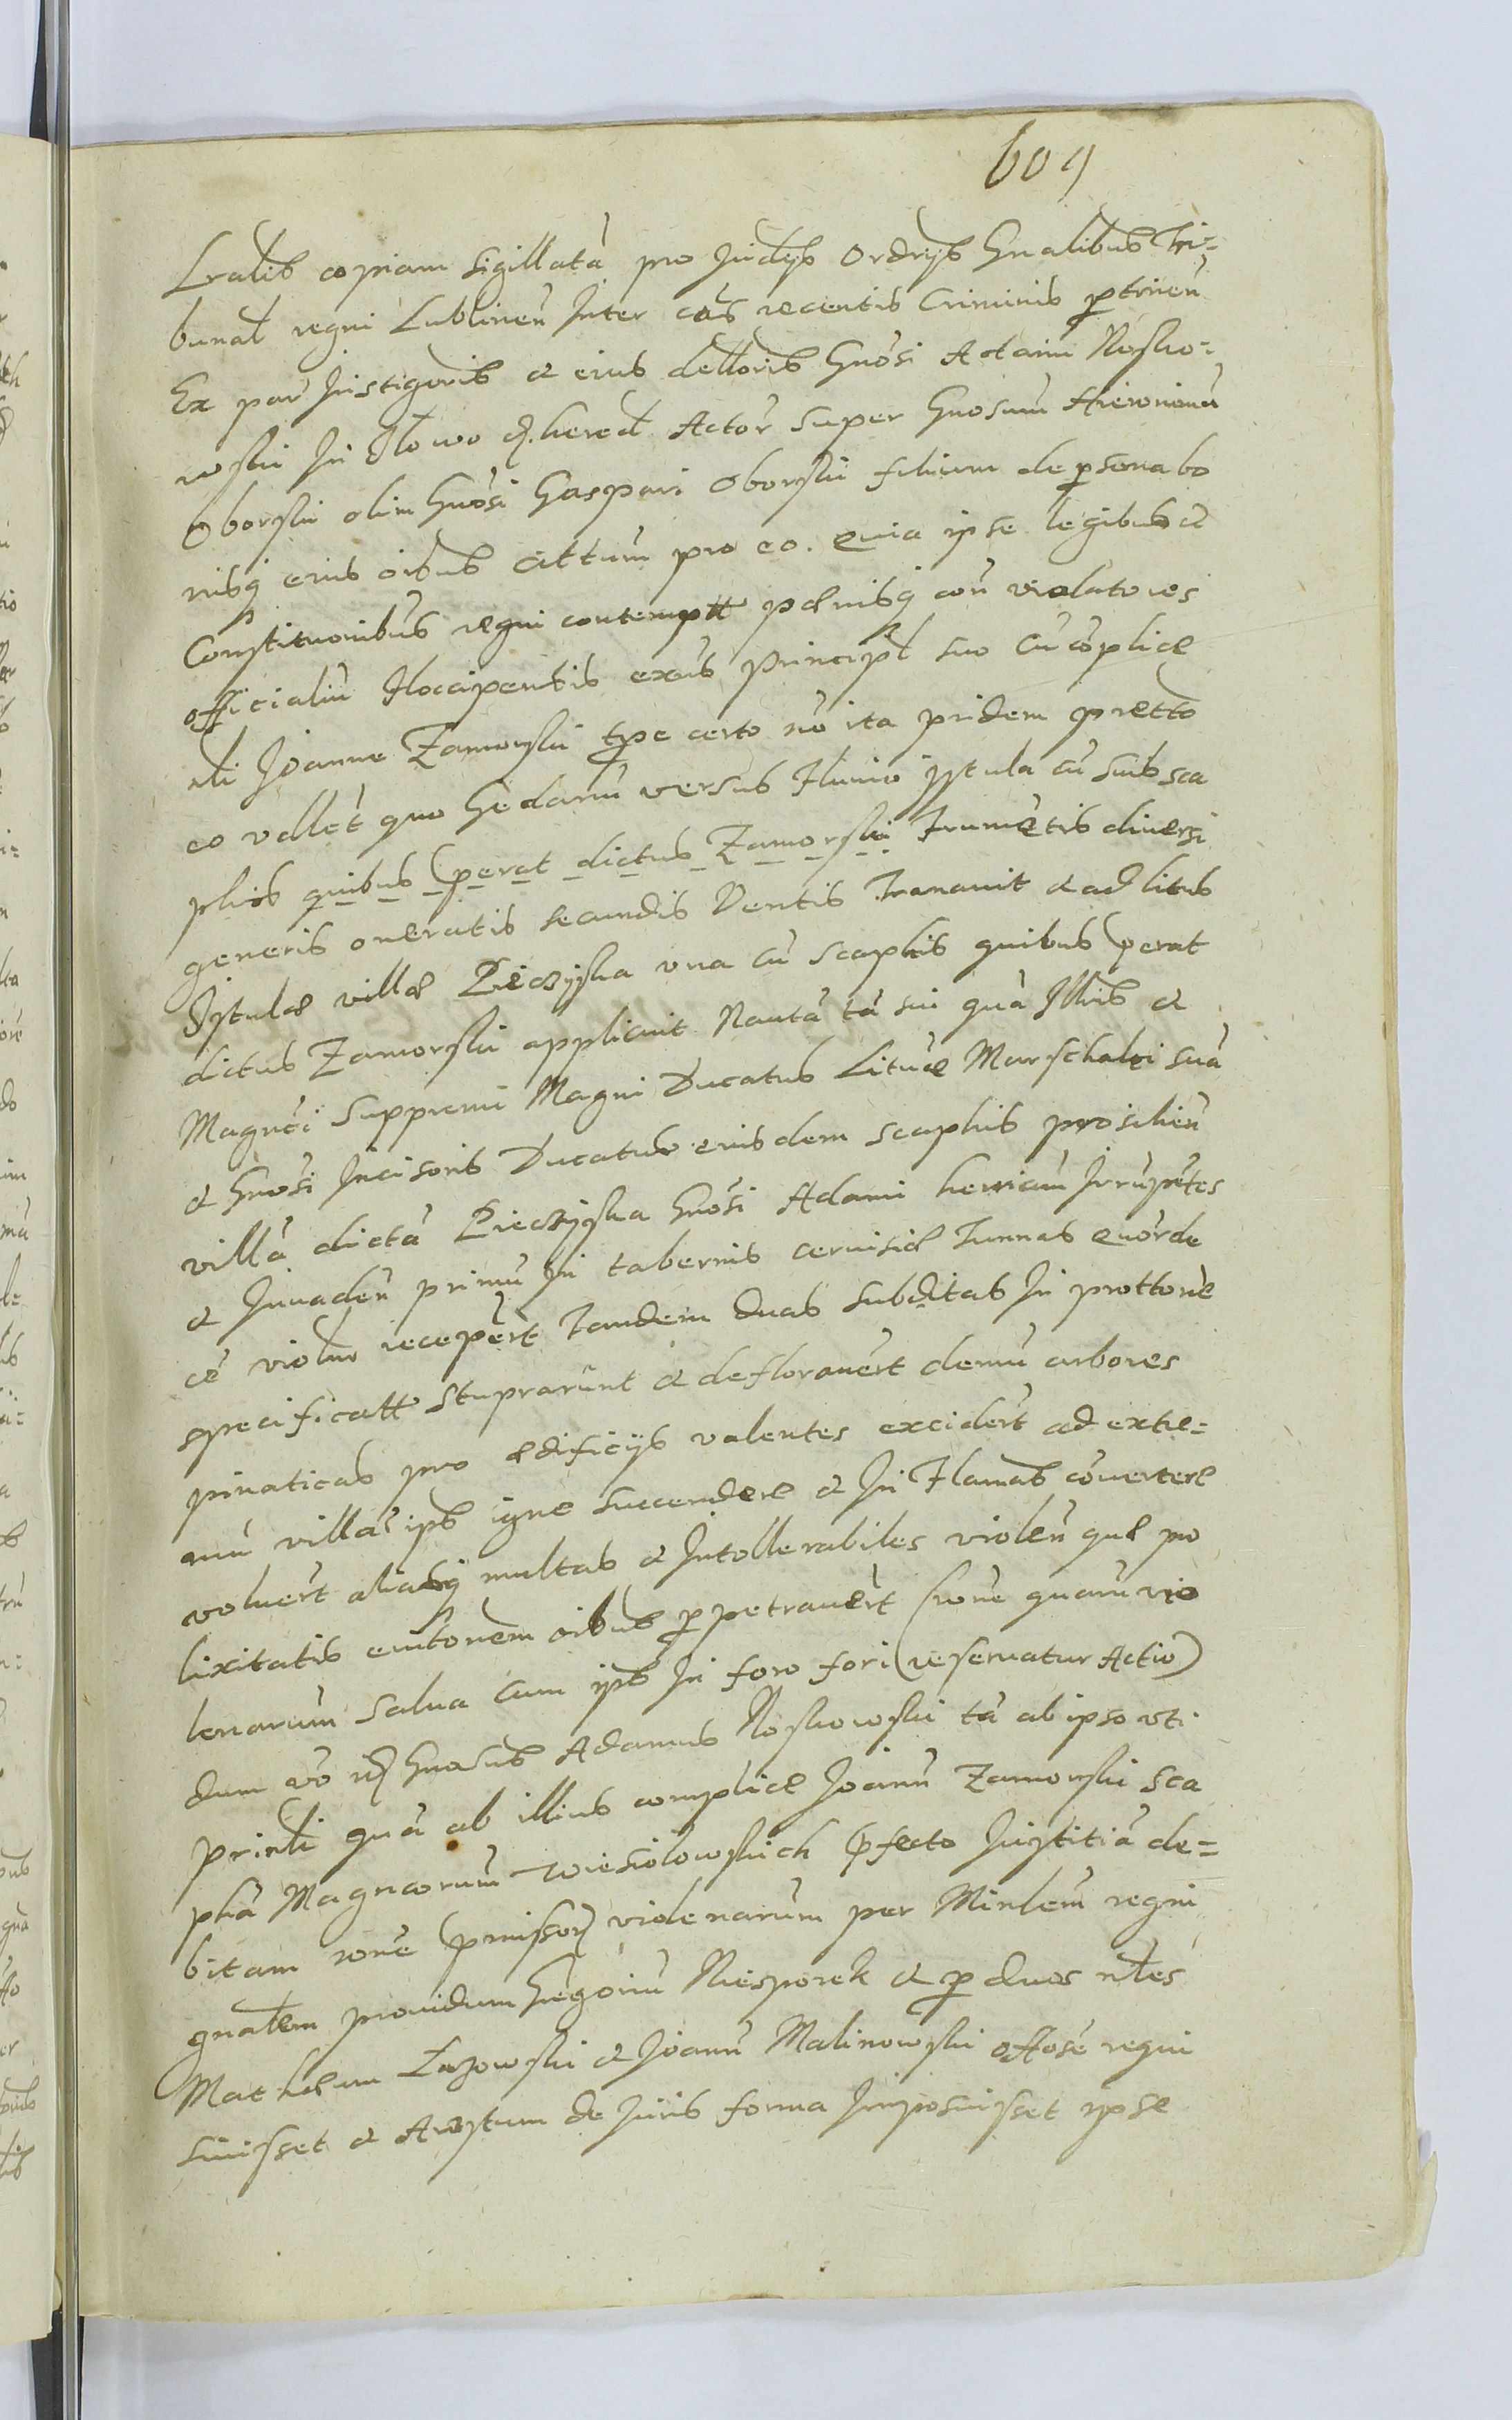 609
Lralib copiam sigillatã pro Judijs Ordrijs Gnalibus Tri=
bunal regni Lublinen̄ Inter cãs recentis Criminis ptinen̄
Ex par Instigoris et eius delloris Gnosi Adami Nosko=
wski In Iłowo hered Actor super Gnosum Hieronimũ
Oborski olim Gnosi Gaspari Oborski filium de persona bo
nisq eius oibus cittum pro eo. Quia ipse legibus et
Constituonibus regni contemptt penisq con violatores
officialiu floccipensis exñs principl suo cu cõplice
nli Joanne Zamorski tpe certo nõ ita pridem prætto
eo vallet quo Gedanũ versus fluuio Istula cũ suis sca
phis quibus pẽrat dictus Zamorski frumẽtis diuersi
generis oneratis secundis Ventis Tranauit et ad litus
Istulæ villæ Pieczyska vna cũ scaphis quibus pẽrat
dictus Zamorski applicuit Nautã tã sui quã Illris et
Magnci Suppremi Magni Ducatus Lituæ Marschalci suã
et Gnosi Incisoris Ducatus eiusdem scaphis prosilien̄
villã dictã Pieczyska Gnosi Adami heriam Irrupẽtes
et Inuaden̄ primũ In tabernis ceruisiæ Tunnas quorde
cẽ violno recepert Tandem duas subditas In prottone
specificatt stuprarunt et deflorauert demũ arbores
pinaticas pro ædificijs valentes excidert ad extre=
mũ villas ipš igne succendere et In flamas cõuertere
voluert aliasq multas et Intollerabiles violen̄ quæ pro
lixitatis euitonem oibus ppetrauert (rone quaru vio
lenarum salua cum ipš In foro fori reseruatur Actio)
dum võ Gnosus Adamus Noskowski tã ab ipso vti
prinli quã ab illius complice Joann̄ Zamorski sca
phã Magncorum Wiesiolowskich pfecto Iustitiã de=
bitam rone pmissor violenarum per Minlem regni
gnalem prouidum Gregoriũ Niesporek et p duos nles
Mathæum Łazowski et Joann̄ Malinowski offose requi
siuisset et Arestum de Iuris forma Imposuisset ipse